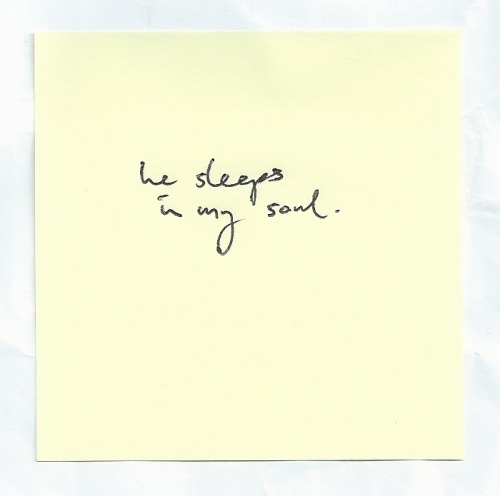 he sleeps
in my soul.